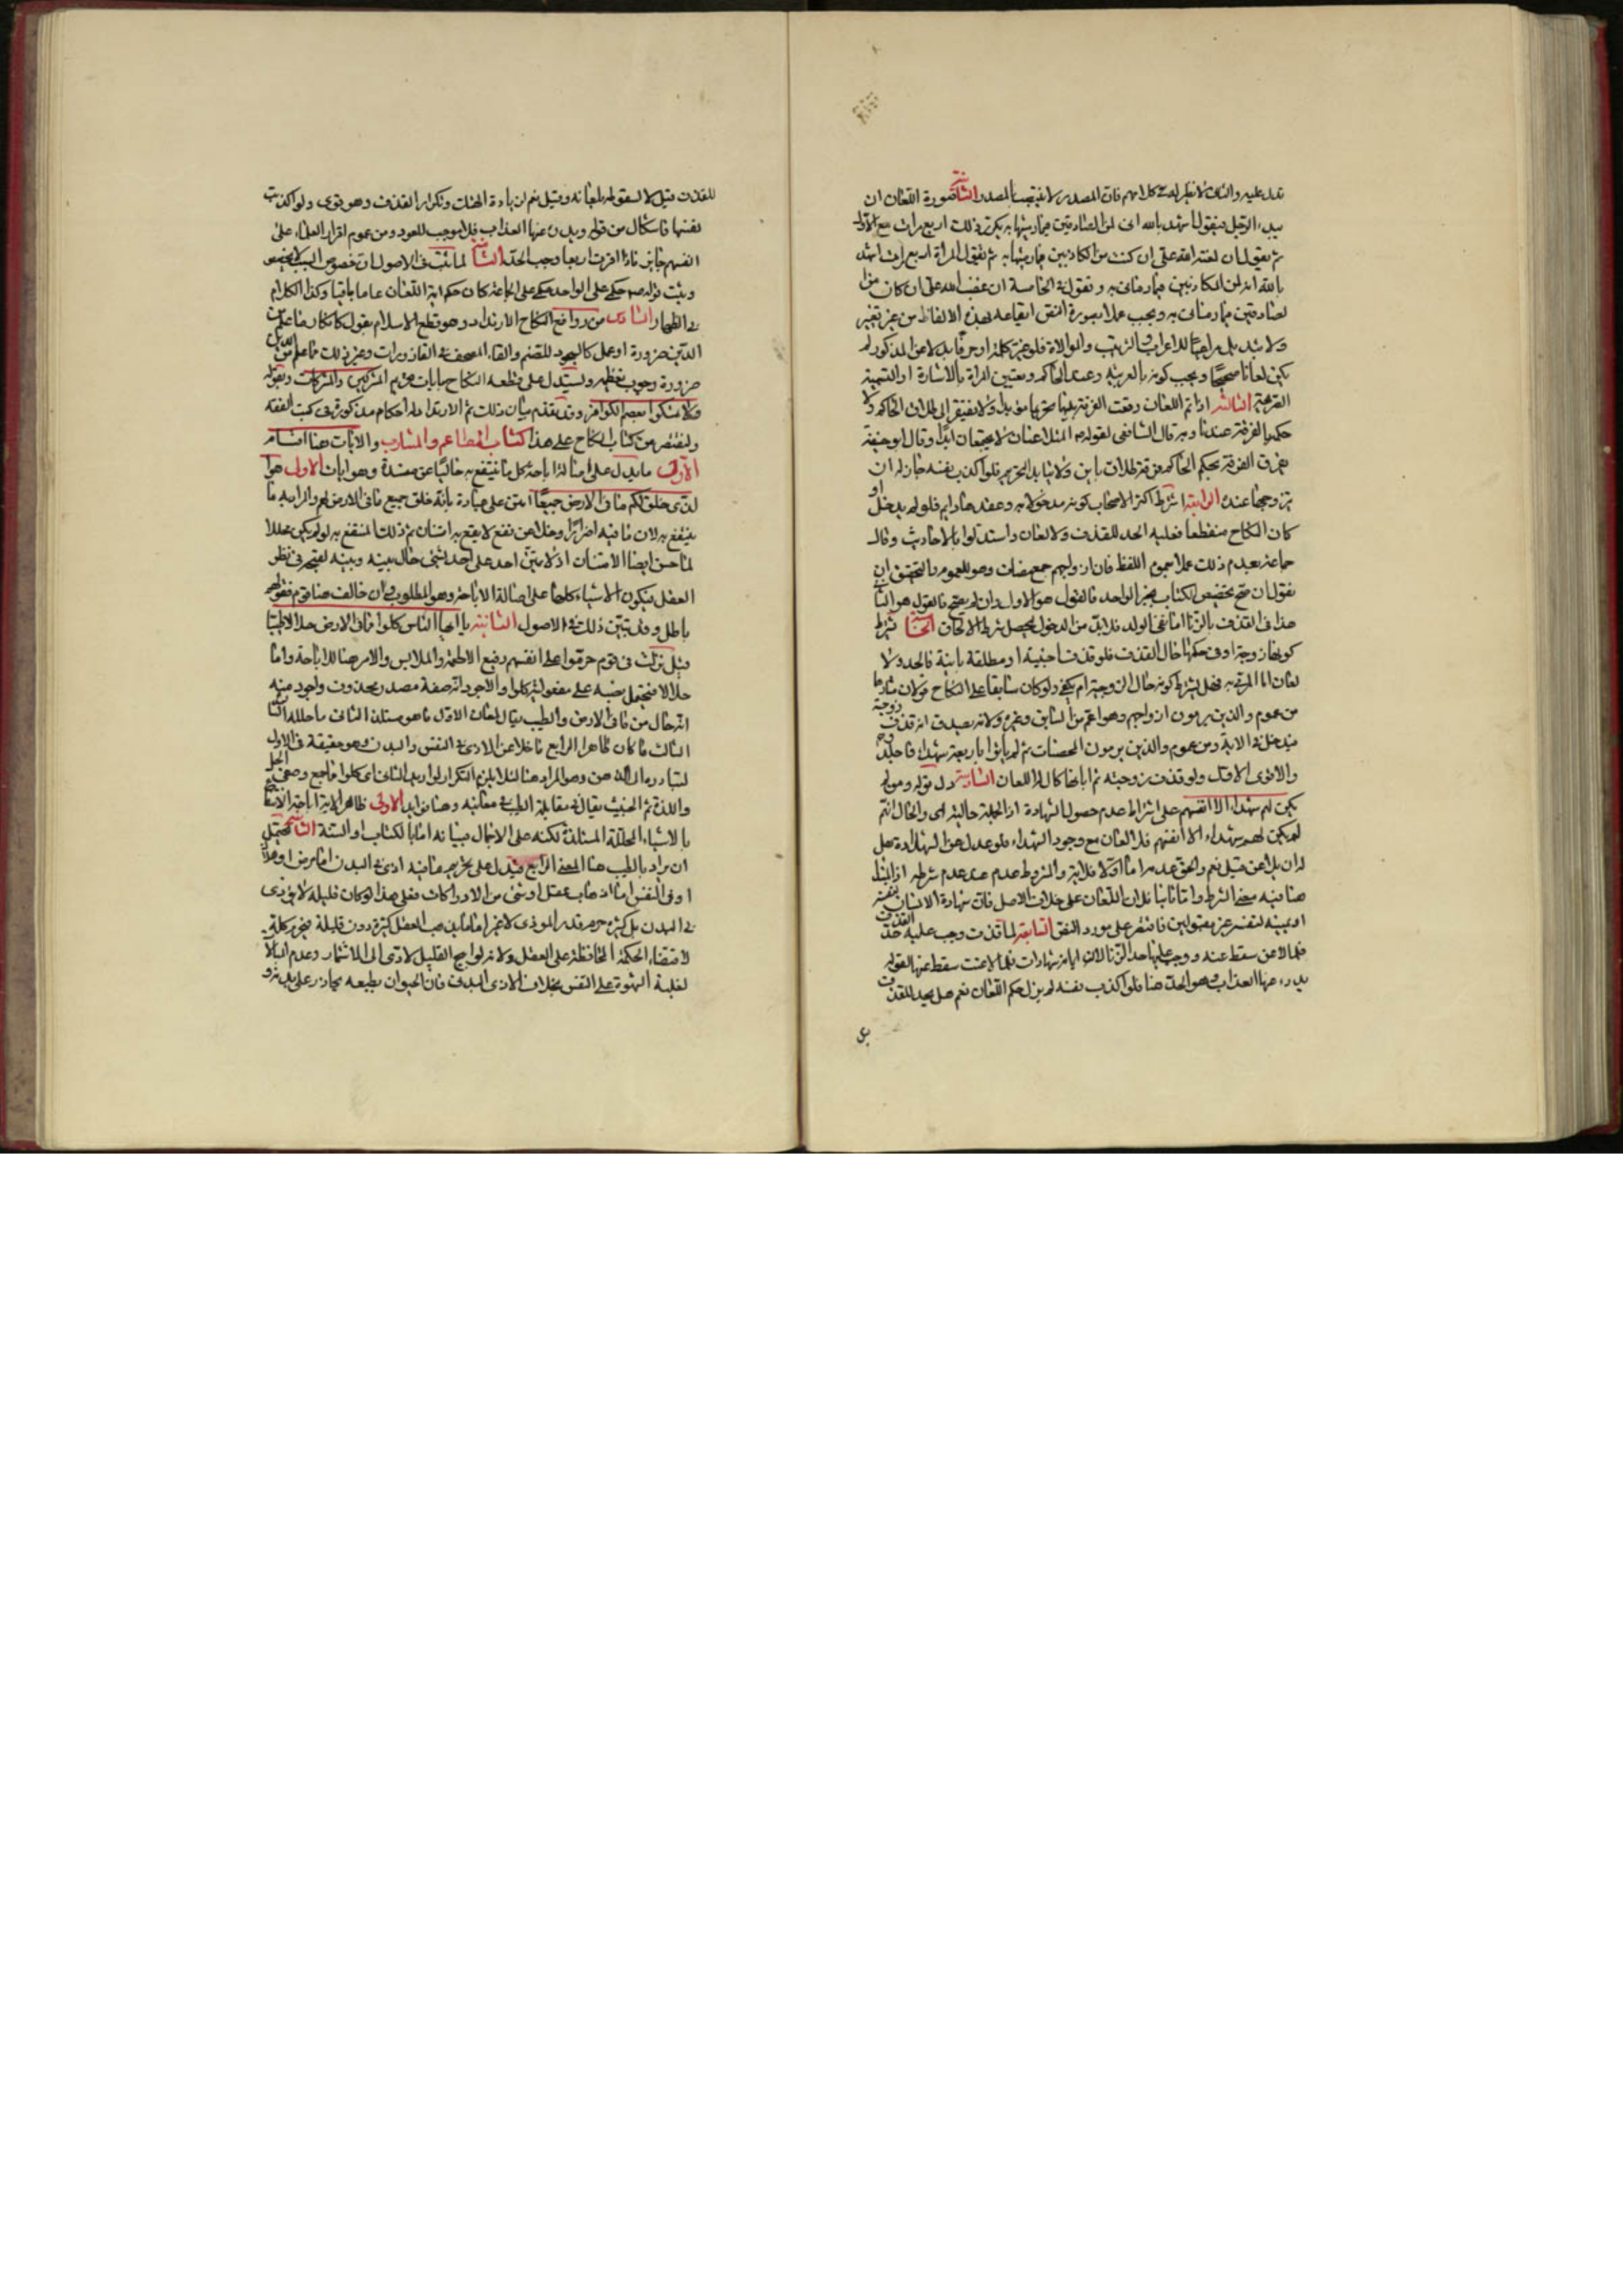 تدل عليه والثانى لا نظير له فى كلامهم فان المصدر لا ينتصب بالمصدر الثانية صورة اللعان ان
يبدء الرجل فيقول اشهد بالله انى لمن الصادقين فيما رميتها به يكرر ذلك اربع مرات مع الاول
ثم يقول ان لعنة الله على ان كنت من الكاذبين فيما رميتها به ثم تقول المراة اربع مرات اشهد
بالله انه لمن الكاذبين فيما رمانى به وتقول فى الخامسة ان غضب الله على ان كان من ا
لصادقين فيما رمانى به ويجب عملا بصورة النص ايقاعه بهذه الالفاظ من غير تغيير
ولا تبديل مراعيا للاعراب والترتيب والموالاة فلو غير كلمة او حرفا بدلا عن المذكور لم
يكن لعانا صحيحا ويجب كونه بالعربية وعند الحاكم وتعيين المراة بالاشارة او التسمية
الصريحة الثالثة اذا تم اللعان وقعت الفرقة بينهما تحريما مؤبدا ولا يفتقر الى طلاق الحاكم ولا
حكم بالفرقة عندنا وبه قال الشافعى لقوله ص المتلاعنان لا يجتمعان ابدا وقال ابو حنيفة
يفرق الفرقة بحكم الحاكم فرقة طلاق باين ولا يتابد التحريم فلو اكذب نفسه جاز له ان
يتزوجها عنده الرابعة اشترط اكثر الاصحاب كونه مدخولا بها وعقدها دايم فلو لم يدخل او
كان النكاح منقطعا فعليه الحد للقذف ولا لعان واستدلوا بالاحاديث وقال
جماعة بعدم ذلك عملا بعموم اللفظ فان ازواجهم جمع مضاف وهو للعموم والتحقيق ان
نقول ان صح تخصيص الكتاب بخبر الواحد فالقول هو الاول وان لم يصح فالقول هو الثانى
هذا فى القذف بالزنا اما نفى الولد فلا بد من الدخول ليحصل شرط الالحاق الخامسة يشترط
كونها زوجة او فى حكمها حال القذف فلو قذف اجنبية او مطلقة باينة فالحد ولا
لعان اما المرمى به فهل يشترط كونه حال الزوجية ام يكفى ولو كان سابقا على النكاح قولان مثارهما
من عموم والذين يرمون ازواجهم وهو اعم من السابق وغيره ولانه يصدق انه قذف زوجة
فيدخل فى الاية ومن عموم والذين يرمون المحصنات ثم لم ياتوا باربعة شهداء فاجلدوهم
والاقوى الاول ولو قذف زوجته ثم ابانها كان له اللعان السادسة دل قوله ولم
يكن لهم شهداء الا انفسهم على اشتراط عدم حصول الشهادة اذ الجملة حالية اى والحال انه
لم يكن لهم شهداء الا انفسهم فلا لعان مع وجود الشهداء فلو عدل عن الشهادة هل
له ان يلاعن قيل نعم والحق عدمه اما اولا فلاية والمشروط عدم عند عدم شرطه اذ ابتدا
هنا فيه معنى الشرط واما ثانيا فلان اللعان على خلاف الاصل فان شهادة الانسان لنفسه
او يمينه لنفسه غير مقبولين فاقتصر على مورد النص السابعة لما قذف وجب عليه حد القذف
فلما لاعن سقط عنه ووجب عليها حد الزنا لان ايمانه شهادات فلما لاعنت سقط عنها لقوله
يدرء عنها العذاب وهو الحد هنا فلو اكذب نفسه لم يزل حكم اللعان نعم هل يحد للقذف
للقذف قيل لا لسقوطه بلعانه وقيل نعم لزيادة الهتك وتكرار القذف وهو قوى ولو اكذبت
نفسها فاشكال من قوله ويدرؤ عنها العذاب فلا موجب للعود ومن عموم اقرار العقلاء على
انفسهم جايز فاذا اقرت اربعا وجب الحد الثامنة لما ثبت فى الاصول ان خصوص السبب لا يخصص
وثبت قوله ص حكمى على الواحد حكمى على الجماعة كان حكم اية اللعان عاما باقيا وكذا الكلام
فى الظهار السادس من روافع النكاح الارتداد وهو قطع الاسلام بقول كانكار ما علم من
الدين ضرورة او عمل كالسجود للصنم والقاء المصحف فى القاذورات وغير ذلك مما علم من الدين
ضرورة وجوب تعظيمه ويستدل على قطعه النكاح بايات تحريم المشركين والمشركات وبقوله
ولا تمسكوا بعصم الكوافر وقد تقدم بيان ذلك ثم الارتداد له احكام مذكورة فى كتب الفقه
ولنقتصر من كتاب النكاح على هذا كتاب المطاعم والمشارب والايات هنا اقسام
الاول ما يدل على اصالة اباحة كل ما ينتفع به خاليا عن مفسدة وهو ايات الاولى هو ا
لذى خلق لكم ما فى الارض جميعا امتن على عباده بانه خلق جميع ما فى الارض لهم والمراد به ما
ينتفع به لان ما فيه اضرارا وخلا عن نفع لا يقع به امتنان ثم ذلك المنتفع به لو لم يكن محللا
لما حسن ايضا الامتنان اذ لا يمتن احد على احد بشئ حال بينه وبينه لقبحه فى نظر
العقل فيكون الاشياء كلها على اصالة الاباحة وهو المطلوب فان خالف هنا قوم فقولهم
باطل وقد تبين ذلك فى الاصول الثانية يا ايها الناس كلوا مما فى الارض حلالا طيبا
قيل نزلت فى قوم حرموا على انفسهم رفيع الاطعمة والملابس والامر هنا للاباحة واما
حلالا فيحتمل نصبه على مفعولية كلوا والاجود انه صفة مصدر محذوف واجود منه
انه حال من ما فى الارض والطيب يقال لمعان الاول ما هو مستلذ الثانى ما حلله الشارع
الثالث ما كان طاهرا الرابع ما خلا عن الاذى فى النفس والبدن وهو حقيقة فى الاول
لتبادره الى الذهن وهو المراد هنا لئلا يلزم التكرار لو اريد الثانى اى كلوا ما جمع وصفى الحل
واللذة ثم الخبيث يقال فى مقابلة الطيب فى معانيه وهنا فوايد الاولى ظاهر الاية اباحة الانتفاع
بالاشياء المحللة المستلذة لكنه على الاجمال فبيانه اما بالكتاب او السنة الثانية يحتمل
ان يراد بالطيب هنا المعنى الرابع فيدل على تحريم ما فيه اذى فى البدن اما مرض او هلاك
او فى النفس اما اذهاب عقل او شئ من الادراكات فعلى هذا لو كان قليله لا يؤذى
فى البدن بل كثيره حرم قدر الموذى لا غير اما ما يذهب العقل كثيره دون قليله فيحرم كله
لاقتضاء الحكمة المحافظة على العقل ولانه لو ابيح القليل لادى الى الاشتهار وعدم المبالاة
لغلبة الشهوة على النفس بخلاف الاذى البدنى فان الحيوان بطبعه يحاذر على بدنه